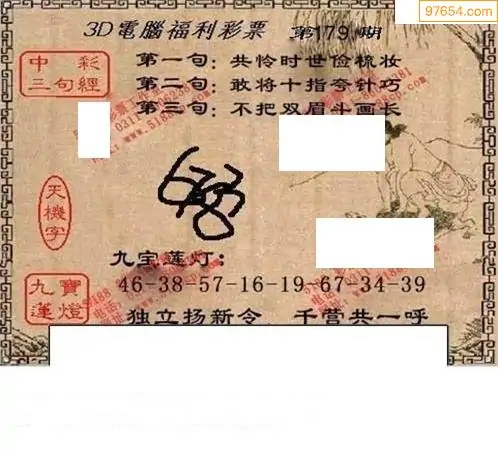 97654.com
3D電腦福利彩票 第179期
中彩
三句經
第一句：共怜时世俭梳妆
第二句：敢将十指夸针巧
第三句：不把双眉斗画长
天機字
九宝莲灯：
九寶
蓮燈
46-38-57-16-19-67-34-39
独立扬新令 千营共一呼